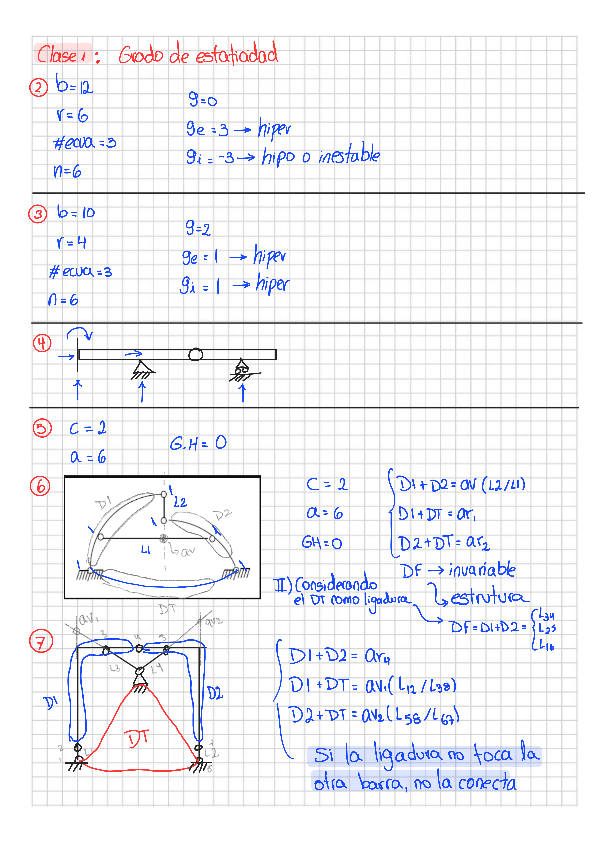 Clase 1: Grado de estaticidad
② b=12
r=6
#ecua=3
n=6
g=0
ge=3 → hiper
gi=-3 → hipo o inestable
③ b=10
r=4
#ecua=3
n=6
g=2
ge=1 → hiper
gi=1 → hiper
④
⑤ C=2
a=6
G.H=0
⑥
D1
D2
L2
L1
av
DT
C=2
a=6
GH=0
D1+D2=av(L2/L1)
D1+DT=ar₁
D2+DT=ar₂
DF → invariable
↳ estrutura
II) Considerando
el DT como ligadura
DF=D1+D2=
L34
L25
L16
⑦
av₁
av₂
L3
L4
D1
D2
DT
D1+D2=ar₄
D1+DT=av₁(L12/L38)
D2+DT=av₂(L58/L67)
Si la ligadura no toca la
otra barra, no la conecta